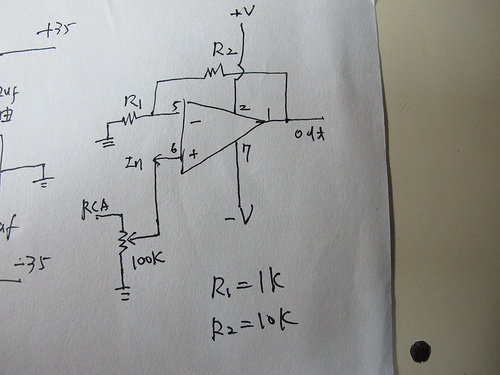 +35
+V
R2
R1
5
2
1
-
out
In
6
+
7
RCA
-V
100K
-35
R1=1K
R2=10K